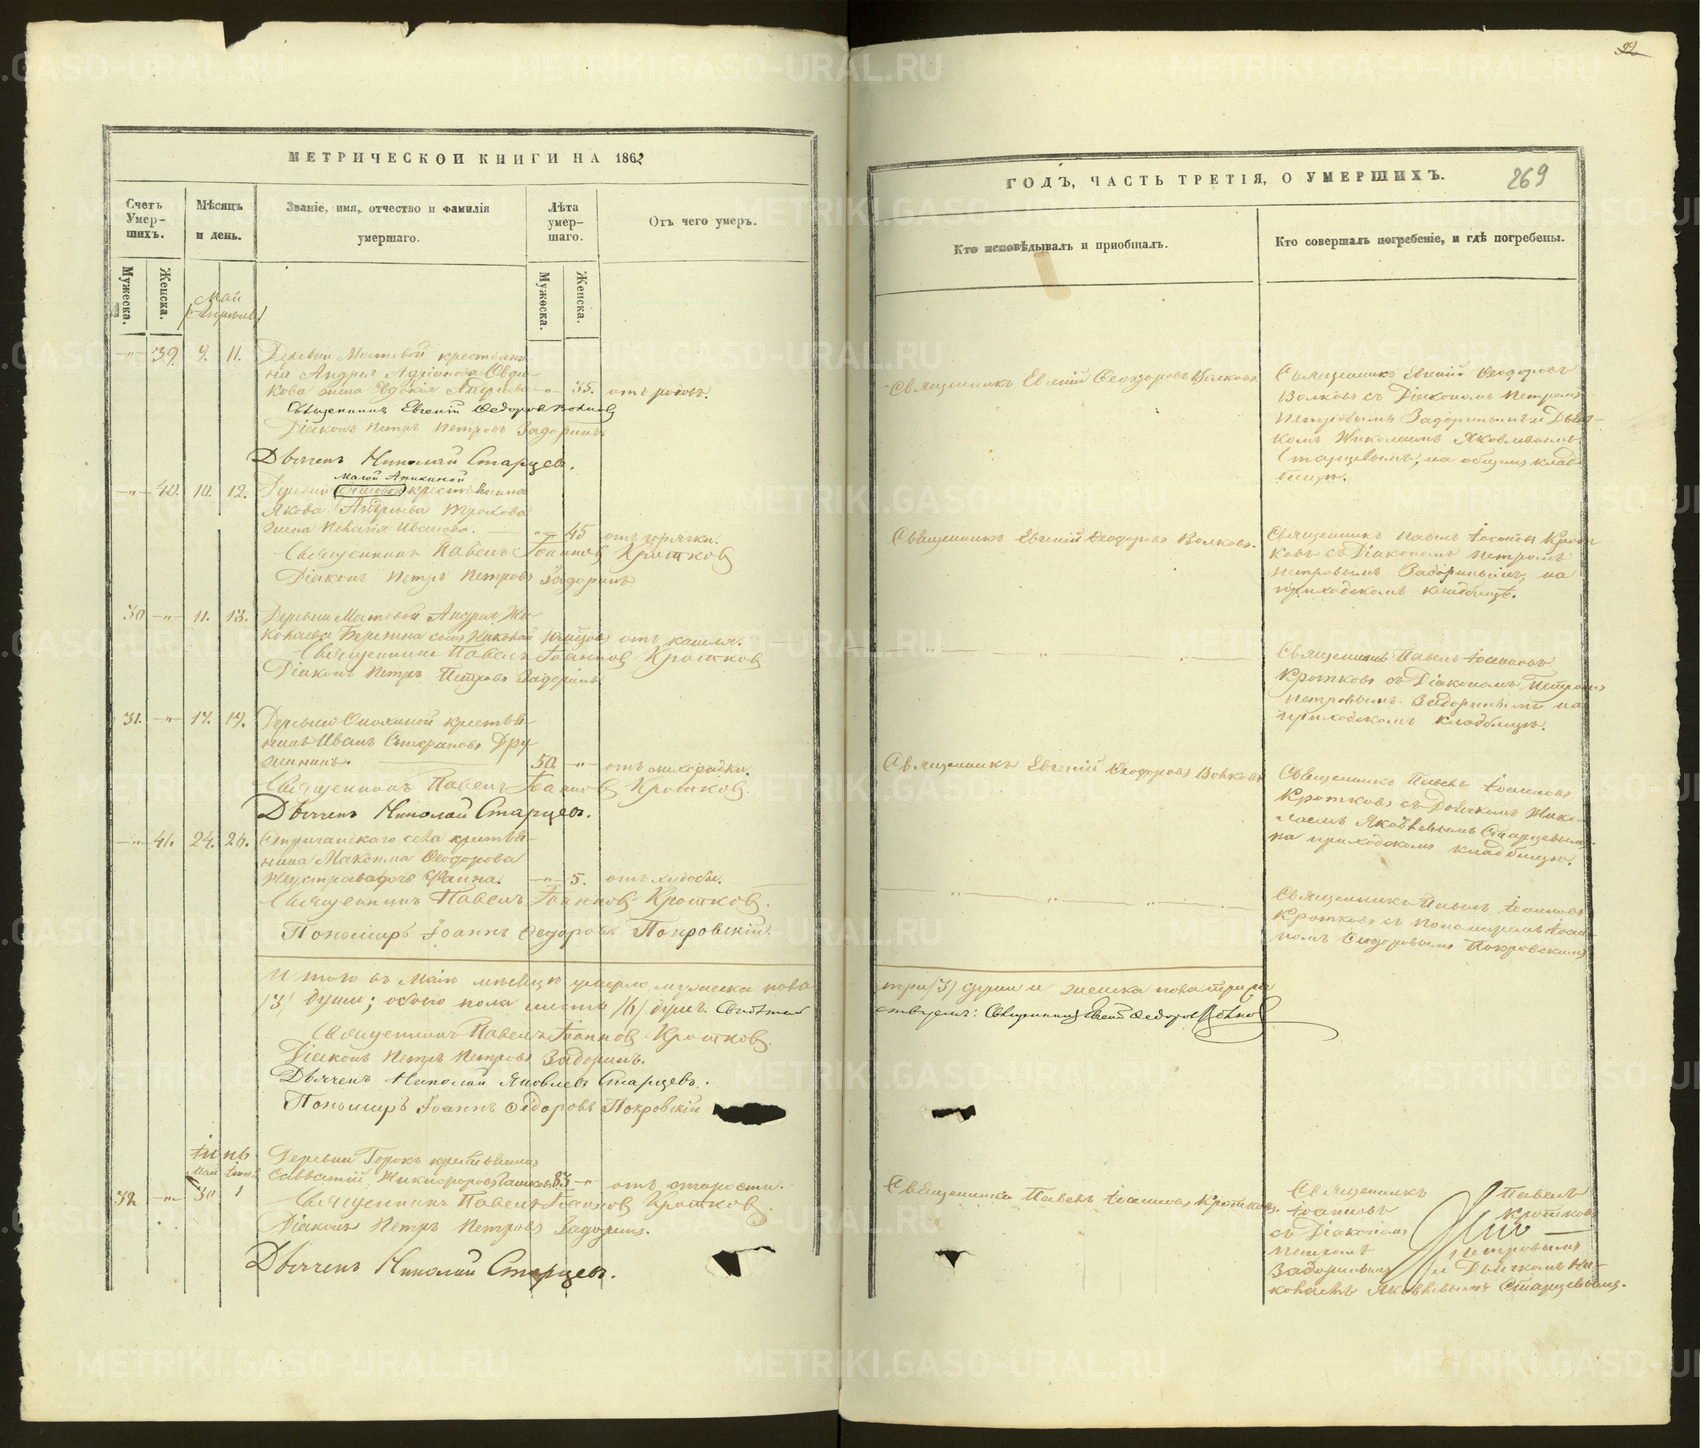 МЕТРИЧЕСКОЙ КНИГИ НА 1862
Счетъ Умер-шихъ.
Мѣсяцъ и день.
Званіе, имя, отчество и фамилія умершаго.
Лѣта умер-шаго.
Отъ чего умеръ.
Мужеска.
Женска.
Май
/Апрѣль/
Мужеска.
Женска.
-"- 39. 9. 11. Деревни Мостовой крестьяни-
на Андрея
кова жена -"- 35. отъ родовъ.
Священникъ Евгеній Ѳедоровъ Волковъ
Діаконъ Петръ Петровъ Задоринъ.
Дьячекъ Николай Старцевъ.
Малой Аникиной
-"- 40. 10. 12. Деревни крестьянина
Якова
жена Ивановa. -"- 45 отъ горячки.
Священникъ Павелъ Іоанновъ Кротковъ
Діаконъ Петръ Петровъ Задоринъ
30 -"- 11. 13. Деревни Мостовой Андрея Ни-
колаева сынъ Николай отъ кашля.
Священникъ Павелъ Іоанновъ Кротковъ
Діаконъ Петръ Петровъ Задоринъ
31. -"- 17. 19. Деревни крестья-
нинъ Иванъ Стефановъ Дру-
жининъ. 50. -"- отъ лихорадки.
Священникъ Павелъ Іоанновъ Кротковъ.
Дьячекъ Николай Старцевъ.
-"- 41. 24. 26. Стриганскаго села крестья-
нина Максима Ѳеодорова
дочь -"- 5.
Священникъ Павелъ Іоанновъ Кротковъ.
Пономарь Іоаннъ Ѳедоровъ Покровскій.
И того въ Маѣ мѣсяцѣ умерло мужеска пола
/3/ души; обоего пола шесть /6/ душъ. Свидѣтель
Священникъ Павелъ Іоанновъ Кротковъ.
Діаконъ Петръ Петровъ Задоринъ.
Дьячекъ Николай Яковлевъ Старцевъ.
Пономарь Іоаннъ Ѳедоровъ Покровскій
Іюнь
Май Іюнь
Деревни Горокъ крестьянинъ
Савватій Никифоровъ 83 -"- отъ старости.
32. -"- 30 1 Священникъ Павелъ Іоанновъ Кротковъ.
Діаконъ Петръ Петровъ Задоринъ.
Дьячекъ Николай Старцевъ.
269
ГОДЪ, ЧАСТЬ ТРЕТІЯ, О УМЕРШИХЪ.
Кто исповѣдывалъ и пріобщалъ.
Кто совершалъ погребеніе, и гдѣ погребены.
Священникъ Евгеній Ѳеодоровъ Волковъ
Священникъ Евгеній Ѳеодоровъ
Волковъ съ Діакономъ Петромъ
Петровымъ Задоринымъ и Дьяч-
комъ Николаемъ Яковлевымъ
Старцевымъ, на общемъ клад-
бищѣ.
Священникъ Евгеній Ѳеодоровъ Волковъ.
Священникъ Павелъ Іоанновъ Крот-
ковъ съ Діакономъ Петромъ
Петровымъ Задоринымъ, на
приходскомъ кладбищѣ.
Священникъ Павелъ Іоанновъ
Кротковъ съ Діакономъ Петромъ
Петровымъ Задоринымъ на
приходскомъ кладбищѣ.
Священникъ Евгеній Ѳеодоровъ Волковъ
Священникъ Павелъ Іоанновъ
Кротковъ съ Дьячкомъ Нико-
лаемъ Яковлевымъ Старцевымъ
на приходскомъ кладбищѣ.
Священникъ Павелъ Іоанновъ
Кротковъ съ Пономаремъ Іоан-
номъ Ѳеодоровымъ Покровскимъ
три /3/ души и женска пола три /3/
ствуемъ: Священникъ Евгеній Ѳедоровъ Волковъ
Священникъ Павелъ Іоанновъ Кротковъ.
Священникъ Павелъ
Іоанновъ Кротковъ
съ Діакономъ
Петромъ Петровымъ
Задоринымъ и Дьячкомъ Ни-
колаемъ Яковлевымъ Старцевымъ.
METRIKI.GASO-URAL.RU